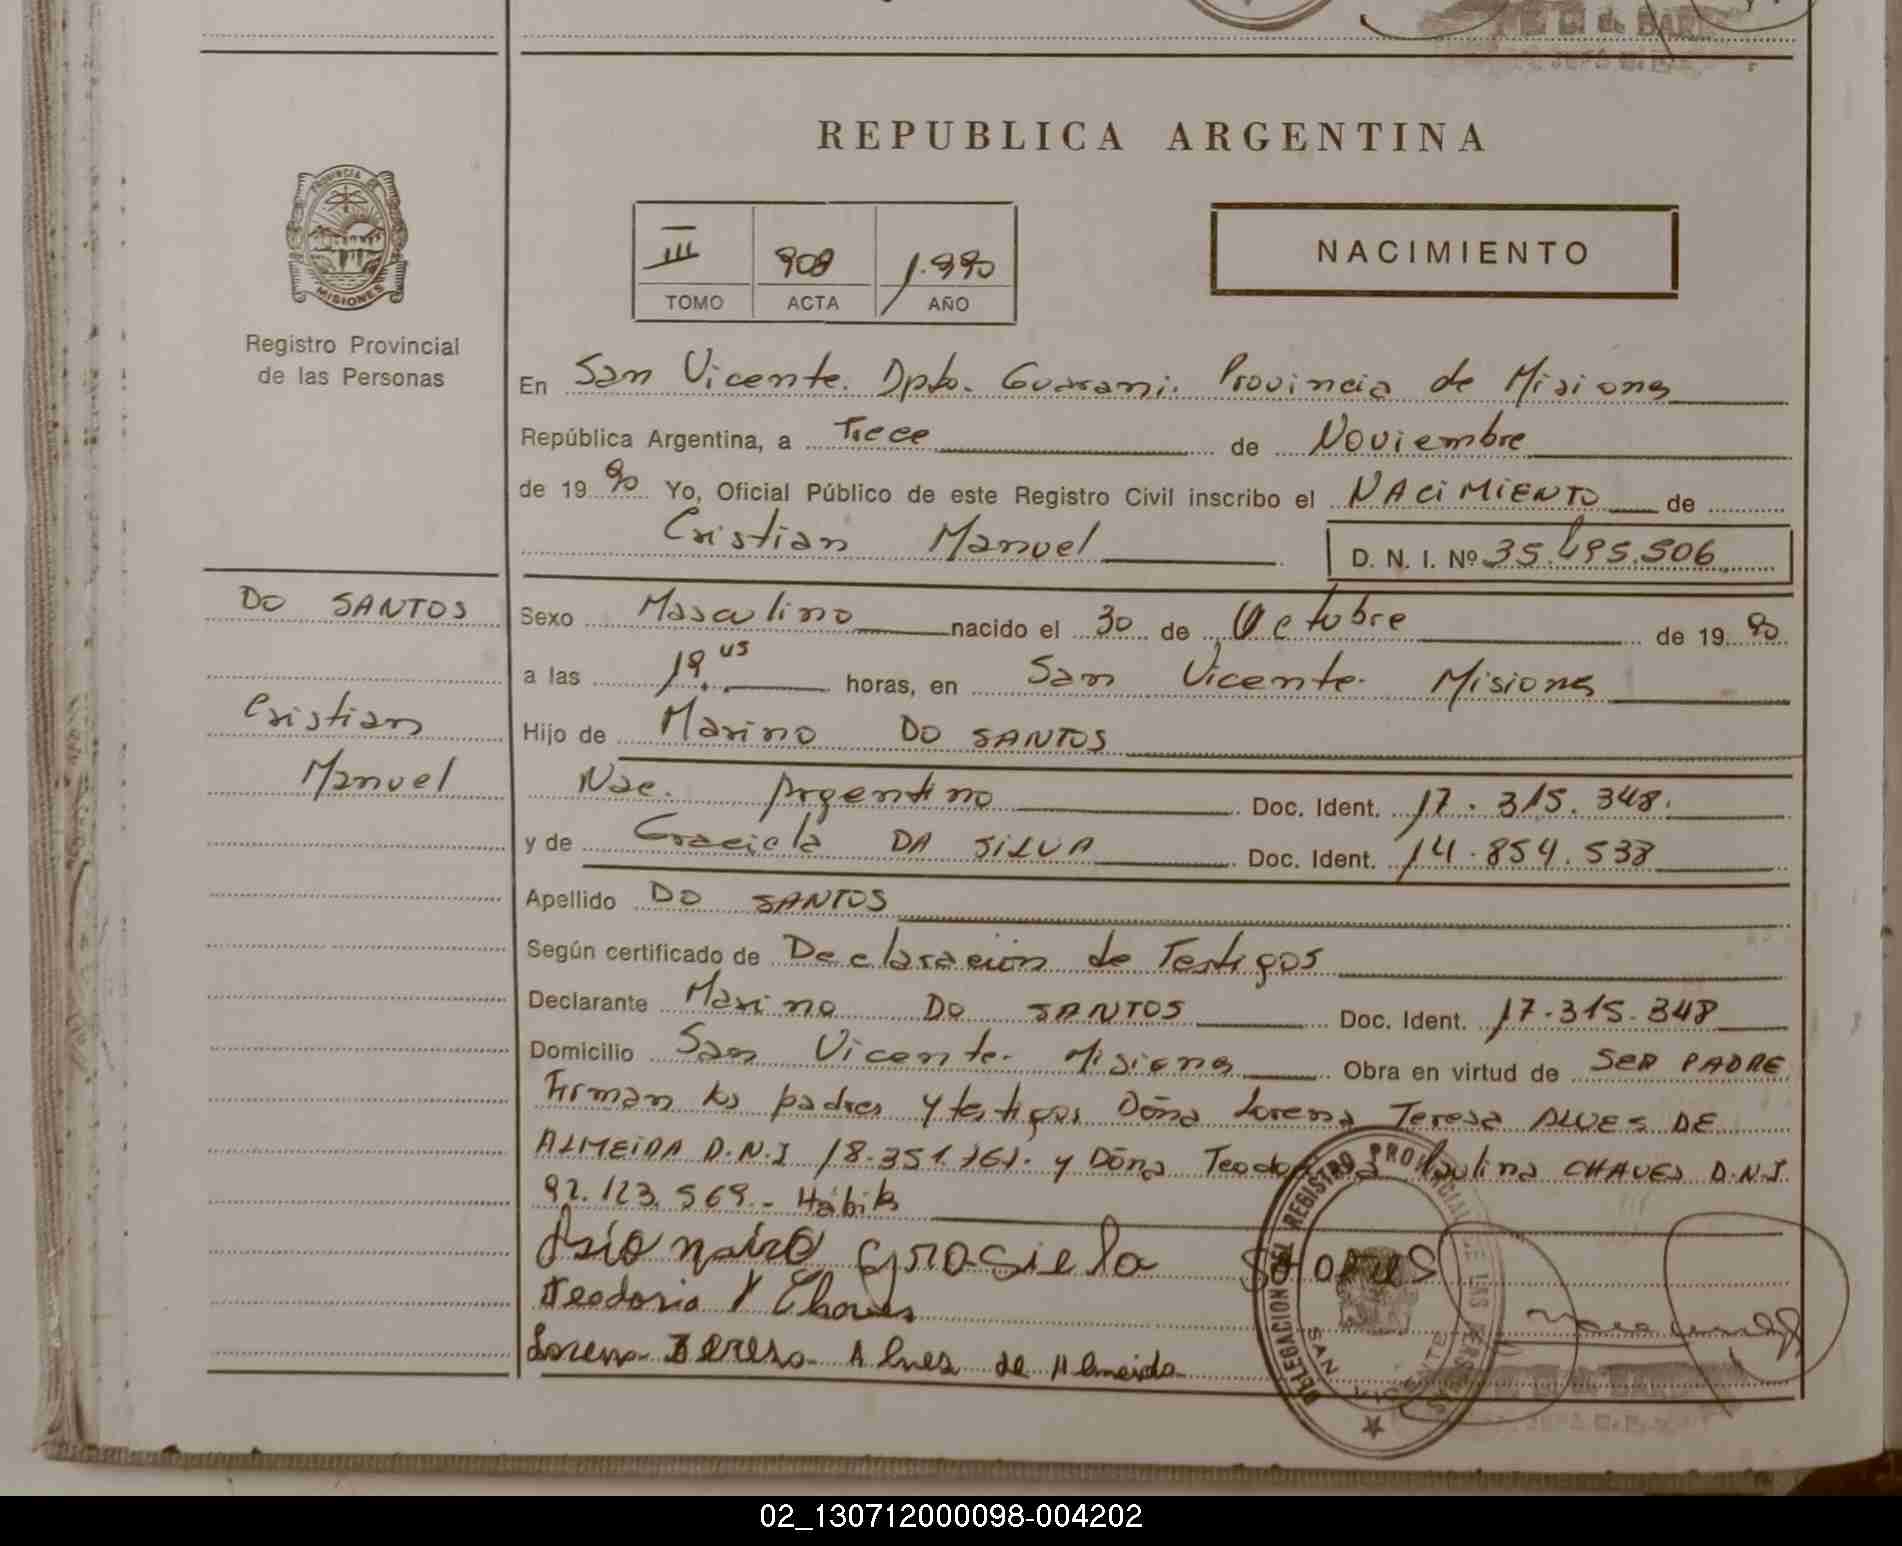 REPUBLICA ARGENTINA
PROVINCIA DE
MISIONES
Registro Provincial
de las Personas
III 908 1.990
TOMO ACTA AÑO
NACIMIENTO
En San Vicente. Dpto. Guarani. Provincia de Misiones
República Argentina, a Trece de Noviembre
de 19 90 Yo, Oficial Público de este Registro Civil inscribo el NACIMIENTO de
Cristian Manuel D. N. I. Nº 35.495.506
DO SANTOS
Cristian
Manuel
Sexo Masculino nacido el 30 de Octubre de 19 90
a las 19 45 horas, en San Vicente. Misiones
Hijo de Marino DO SANTOS
Nac. Argentino Doc. Ident. 17.315.348.
y de Graciela DA SILVA Doc. Ident. 14.854.538
Apellido DO SANTOS
Según certificado de Declaración de Testigos
Declarante Marino DO SANTOS Doc. Ident. 17.315.348
Domicilio San Vicente. Misiones Obra en virtud de SER PADRE
Firman los padres y testigos Doña Lorena Teresa ALVES DE
ALMEIDA D.N.I 18.351.161. y Doña Paulina CHAVES D.N.I.
92.123.569.- Hábil
grasiela
Teodoria P Chaves
Lorena Teresa Alves de Almeida
DELEGACION DEL REGISTRO PROVINCIAL DE LAS PERSONAS
SAN VICENTE
02_130712000098-004202